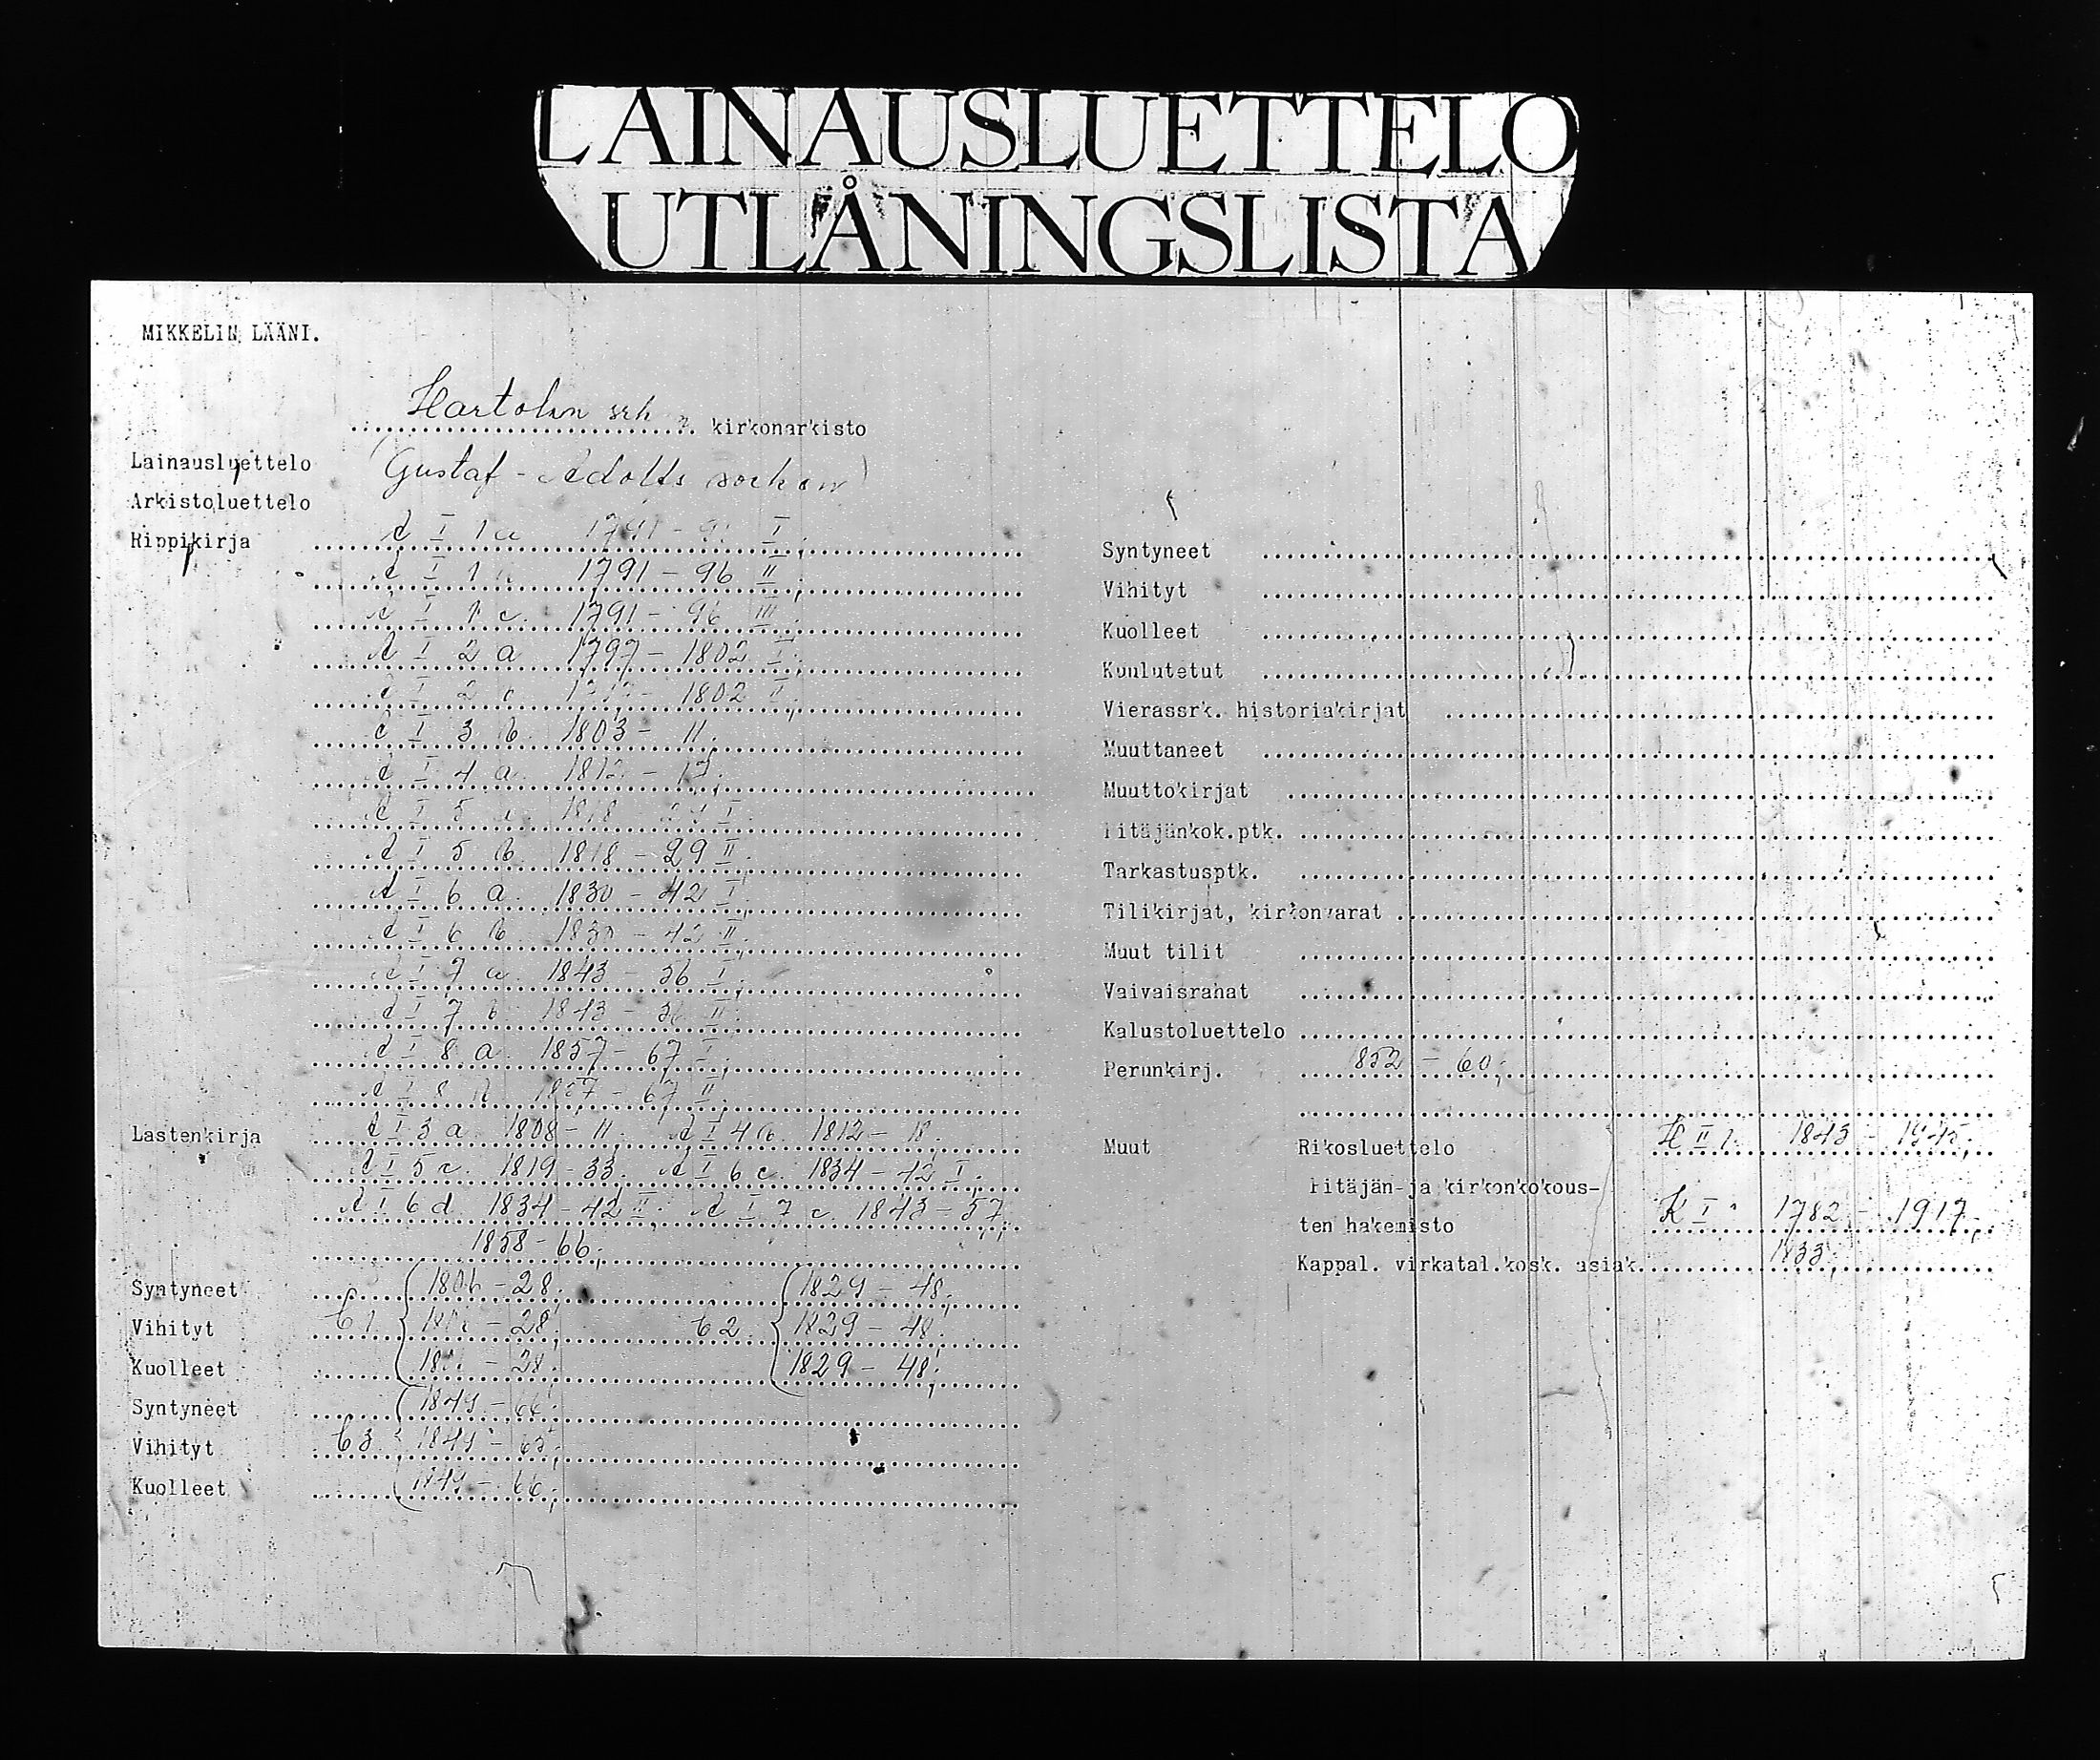 LAINAUSLUETTELO
UTLÅNINGSLISTA
MIKKELIN LÄÄNI.
Hartolan srk kirkonarkisto
Lainausluettelo (Gustaf-Adolfs socken)
Arkistoluettelo
Rippikirja A I 1 a 1791 - 9 I
A I 1 1791 - 96 II;
A I 1 c. 1791 - 96 III
A I 2 a 1797 - 1802 I;
A I 2 - 1802 II;
A I 3 b. 1803 - 11;
A I 4 a. 1812 - 17;
A I 5 1818 - I
A I 5 b. 1818 - 29 II;
A I 6 a. 1830 - 42 I;
A I 6 b. 1830 - 42 II;
A I 7 a. 1843 - 56 I;
A I 7 b. 1843 - 56 II;
A I 8 a. 1857 - 67 I;
A I 8 b 1857 - 67 II;
Lastenkirja A I 3 a 1808 - 11. A I 4 b. 1812 - 18.
A I 5 c. 1819 - 33. A I 6 c. 1834 - 42 I;
A I 6 d. 1834 - 42 II. A I 7 c. 1843 - 57;
1858 - 66;
Syntyneet 1806 - 28; 1829 - 48;
Vihityt C 1. - 28; C 2. 1829 - 48;
Kuolleet - 28; 1829 - 48;
Syntyneet 1849 - 66;
Vihityt C 3. 1849 - 65;
Kuolleet 1849 - 66;
Syntyneet
Vihityt
Kuolleet
Kuulutetut
Vierassrk. historiakirjat
Muuttaneet
Muuttokirjat
Pitäjänkok.ptk.
Tarkastusptk.
Tilikirjat, kirkonvarat
Muut tilit
Vaivaisrahat
Kalustoluettelo
Perunkirj. 1852 - 60;
Muut Rikosluettelo H II 1. 1843 - 1945;
Pitäjän-ja kirkonkokous-
ten hakemisto K I 1782 - 1917;
Kappal. virkatal.kosk. asiak. 1833;